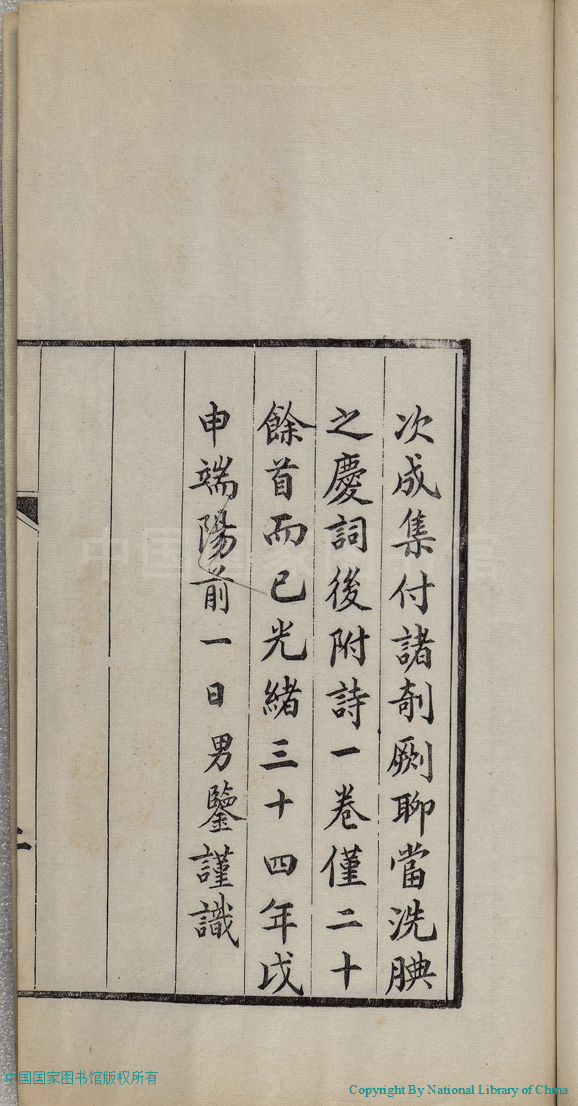 次成集付諸剞劂聊當洗腆
之慶詞後附詩一卷僅二十
餘首而已光緒三十四年戊
申端陽前一日男鑒謹識
中国国家图书馆
中国国家图书馆版权所有
Copyright By National Library of China